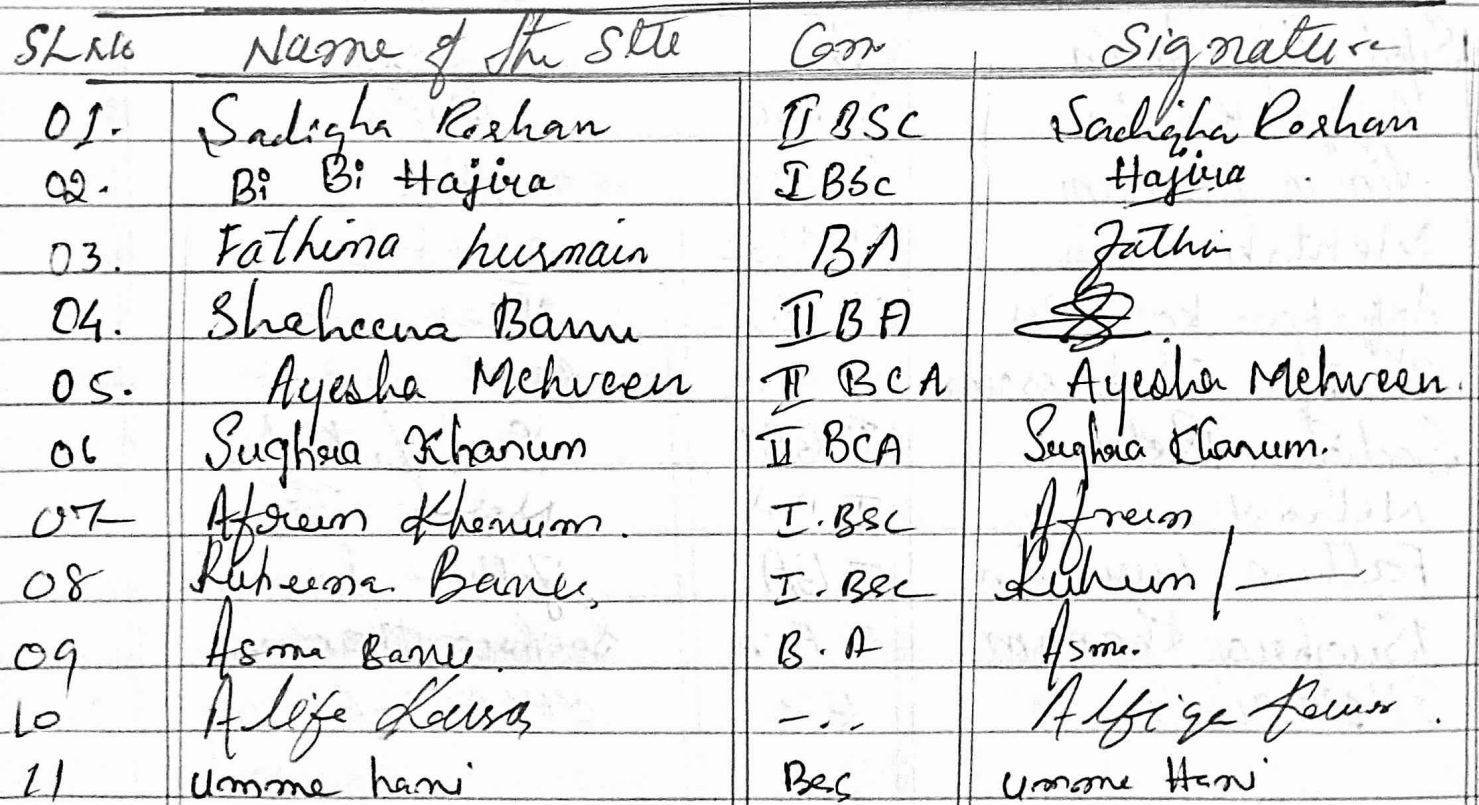 SL No Name of the Stte Con Signature
01. Sadiqha Roshan II BSC Sadiqha Roshan
02. Bi Bi Hajira I BSc Hajira
03. Fathima husnain BA Fathi
04. Shaheena Banu II BA
05. Ayesha Mehveen II BCA Ayesha Mehveen.
06 Sughra Khanum II BCA Sughra Khanum.
07 Afreen Khanum. I. BSC Afreen
08 Ruheena Banu, I. BSC Ruheen
09 Asma Banu B. A Asma.
10 -.. 
11 umme hani Bsc umme Hani